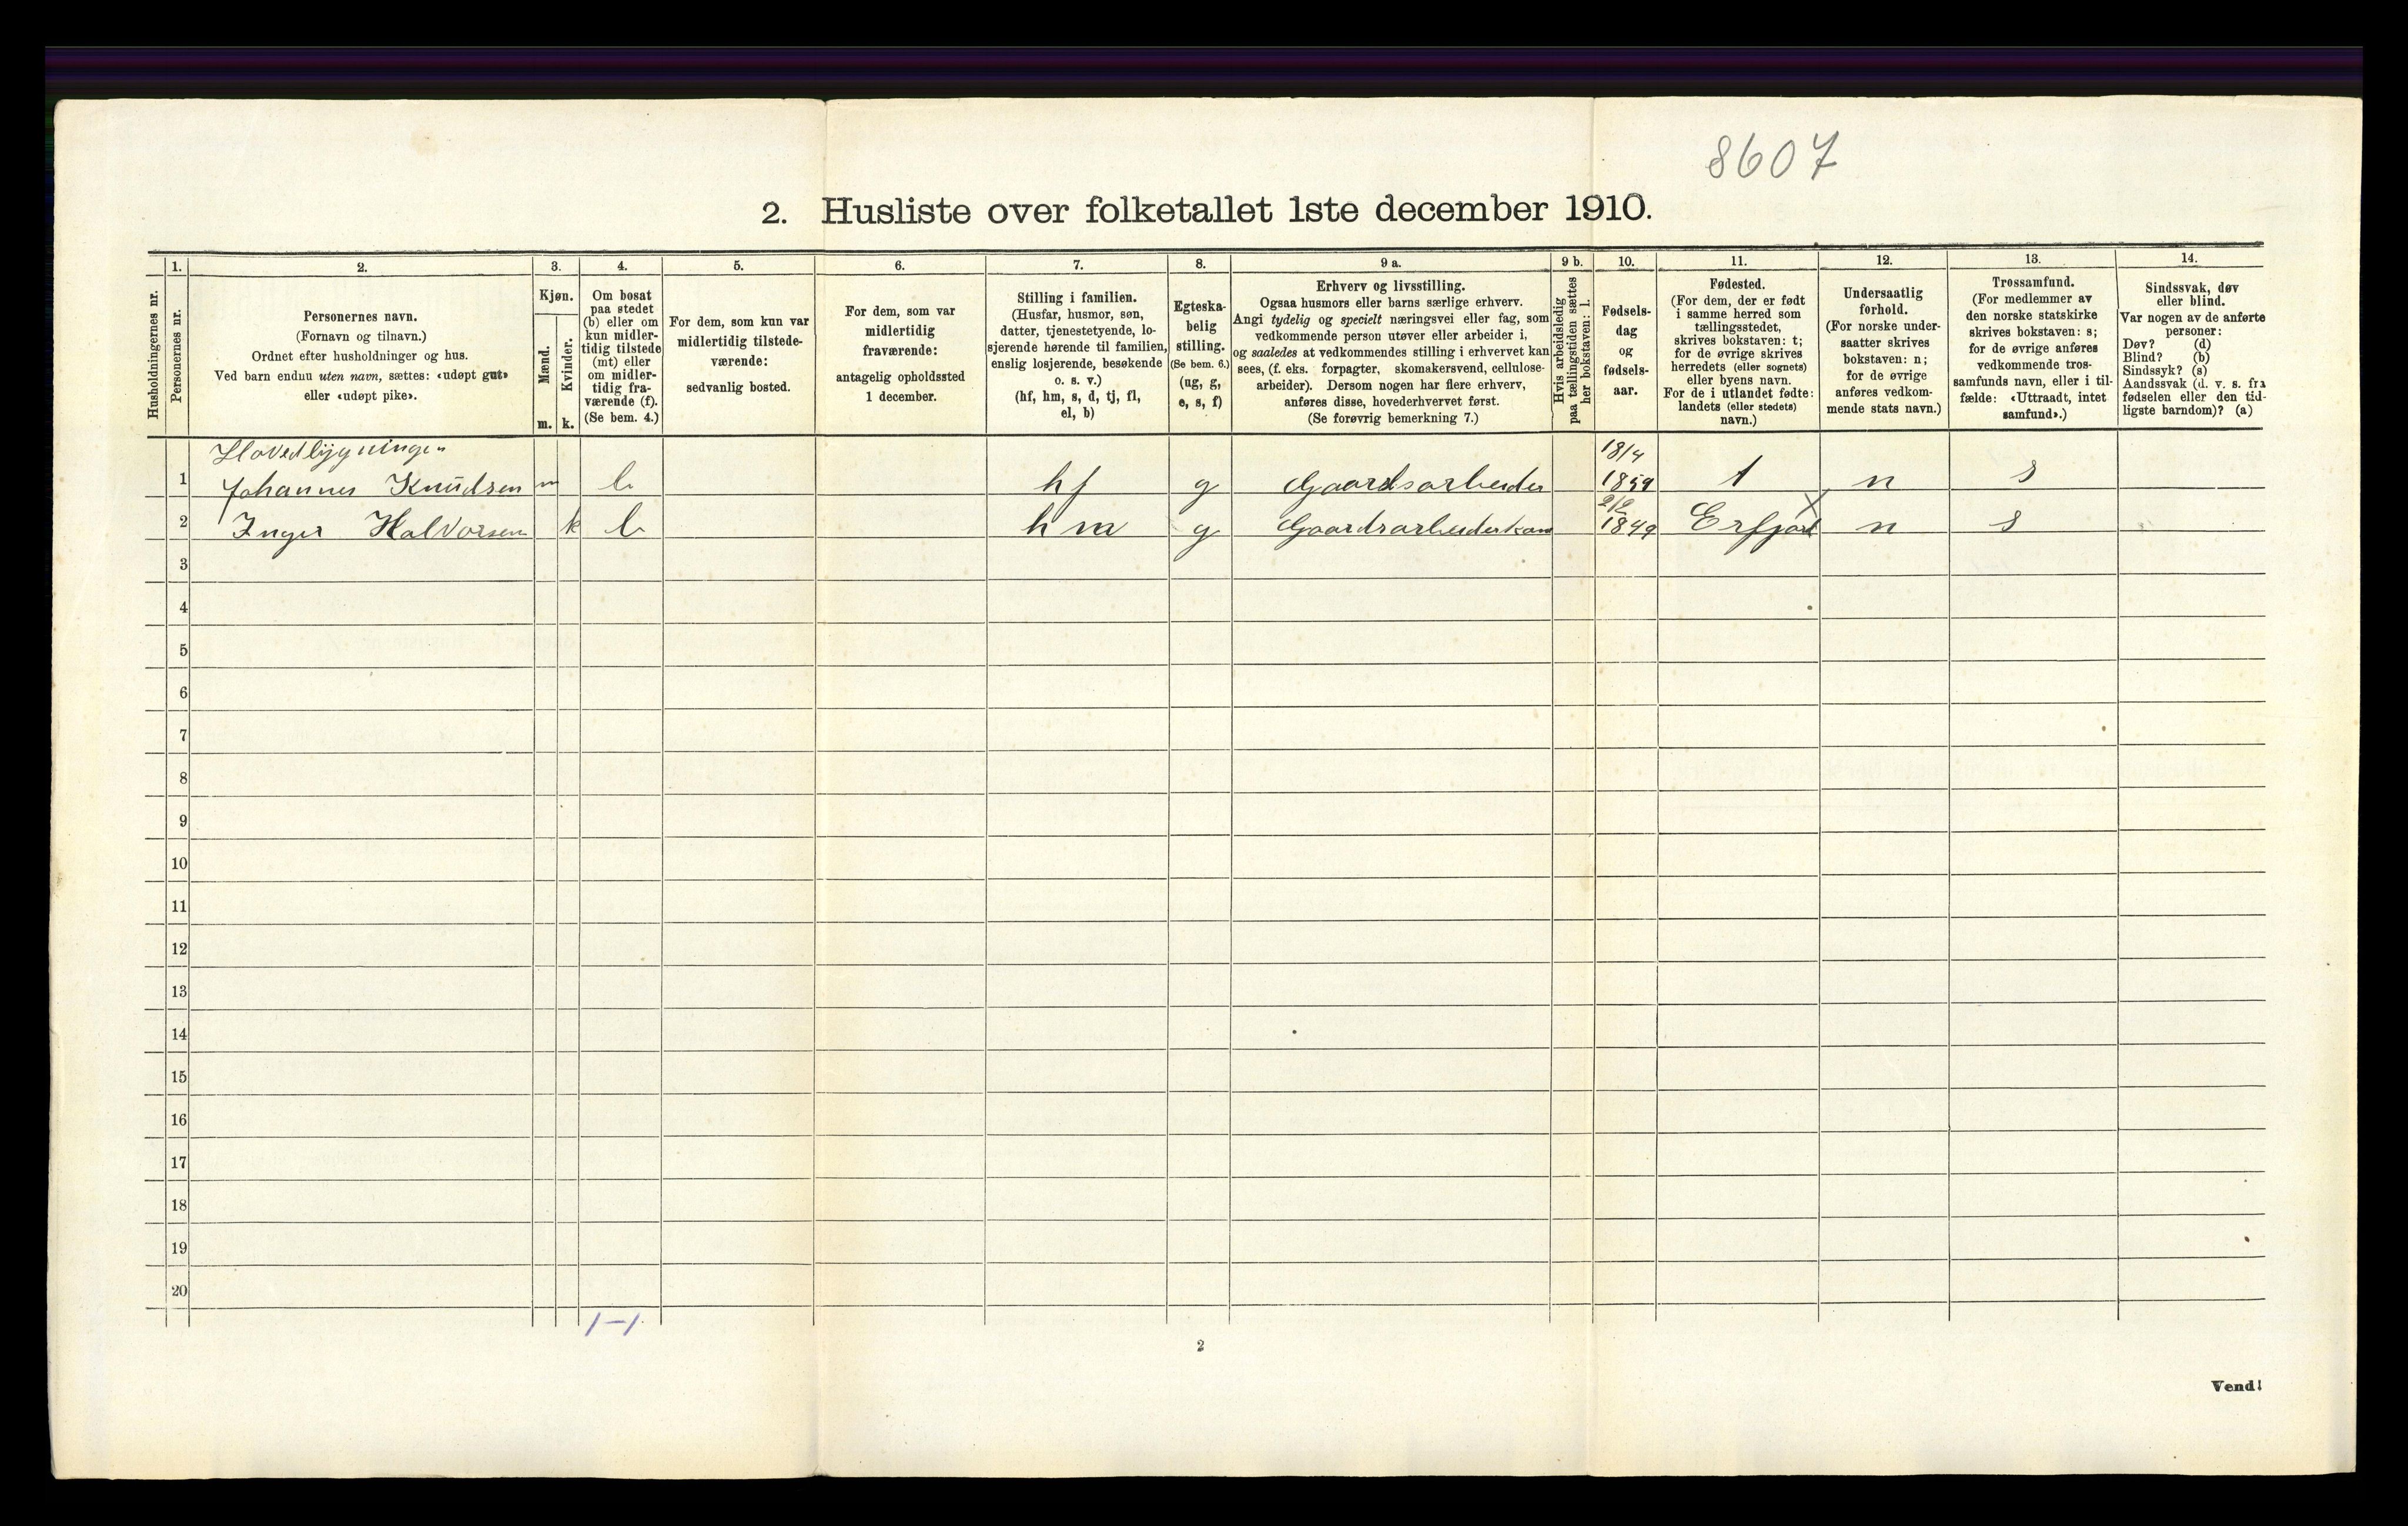 8607
2. Husliste over folketallet 1ste december 1910.
Husholdningernes nr.
1.
Personernes nr.
2.
Personernes navn.
(Fornavn og tilnavn.)
Ordnet efter husholdninger og hus.
Ved barn endnu uten navn, sættes: «udøpt gut»
eller «udøpt pike».
3.
Kjøn.
Mænd.
Kvinder.
m. k.
4.
Om bosat
paa stedet
(b) eller om
kun midler-
tidig tilstede
(mt) eller
om midler-
tidig fra-
værende (f).
(Se bem. 4.)
5.
For dem, som kun var
midlertidig tilstede-
værende:
sedvanlig bosted.
6.
For dem, som var
midlertidig
fraværende:
antagelig opholdssted
1 december.
7.
Stilling i familien.
(Husfar, husmor, søn,
datter, tjenestetyende, lo-
sjerende hørende til familien,
enslig losjerende, besøkende
o. s. v.)
(hf, hm, s, d, tj, fl,
el, b)
8.
Egteska-
belig
stilling.
(Se bem. 6.)
(ug, g,
e, s, f)
9 a.
Erhverv og livsstilling.
Ogsaa husmors eller barns særlige erhverv.
Angi tydelig og specielt næringsvei eller fag, som
vedkommende person utøver eller arbeider i,
og saaledes at vedkommendes stilling i erhvervet kan
sees, (f. eks. forpagter, skomakersvend, cellulose-
arbeider). Dersom nogen har flere erhverv,
anføres disse, hovederhvervet først.
(Se forøvrig bemerkning 7.)
9 b.
Hvis arbeidsledig
paa tællingstiden sættes
her bokstaven: l.
10.
Fødsels-
dag
og
fødsels-
aar.
11.
Fødested.
(For dem, der er født
i samme herred som
tællingsstedet,
skrives bokstaven: t;
for de øvrige skrives
herredets (eller sognets)
eller byens navn.
For de i utlandet fødte:
landets (eller stedets)
navn.)
12.
Undersaatlig
forhold.
(For norske under-
saatter skrives
bokstaven: n;
for de øvrige
anføres vedkom-
mende stats navn.)
13.
Trossamfund.
(For medlemmer av
den norske statskirke
skrives bokstaven: s;
for de øvrige anføres
vedkommende tros-
samfunds navn, eller i til-
fælde: «Uttraadt, intet
samfund».)
14.
Sindssvak, døv
eller blind.
Var nogen av de anførte
personer:
Døv? (d)
Blind? (b)
Sindssyk? (s)
Aandssvak (d. v. s. fra
fødselen eller den tid-
ligste barndom)? (a)
Hovedbygningen 18/4
1 Johannes Knudsen m b hf g Gaardsarbeider 1859 t n s
2/2
2 Inger Halvorsen k b hm g Gaardsarbeiderkone 1849 Erfjord X n s
3
4
5
6
7
8
9
10
11
12
13
14
15
16
17
18
19
20
1-1
2
Vend!